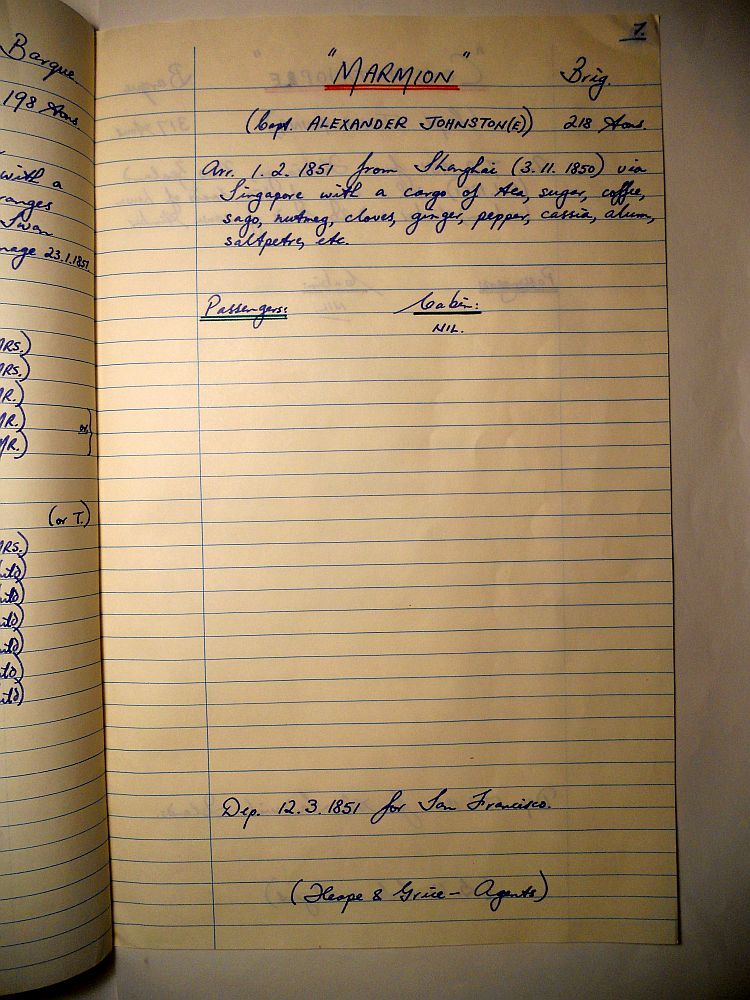 Barque.
198 tons.
with a
Swan
23.1.1851
RS.)
RS.)
R.)
R.) or
R.)
(or T.)
RS.)
7.
"MARMION" Brig.
(Capt. ALEXANDER JOHNSTON(E)) 218 tons.
Arr. 1.2.1851 from Shanghai (3.11.1850) via
Singapore with a cargo of tea, sugar, coffee,
sago, nutmeg, cloves, ginger, pepper, cassia, alum,
saltpetre, etc.
Passengers: Cabin:
NIL.
Dep. 12.3.1851 for San Francisco.
(Heape & Grice - Agents)